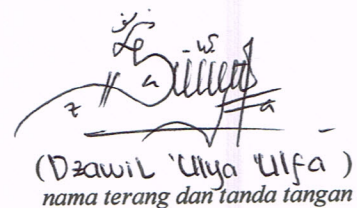 (Dzawil 'Ulya 'Ulfa)
nama terang dan tanda tangan